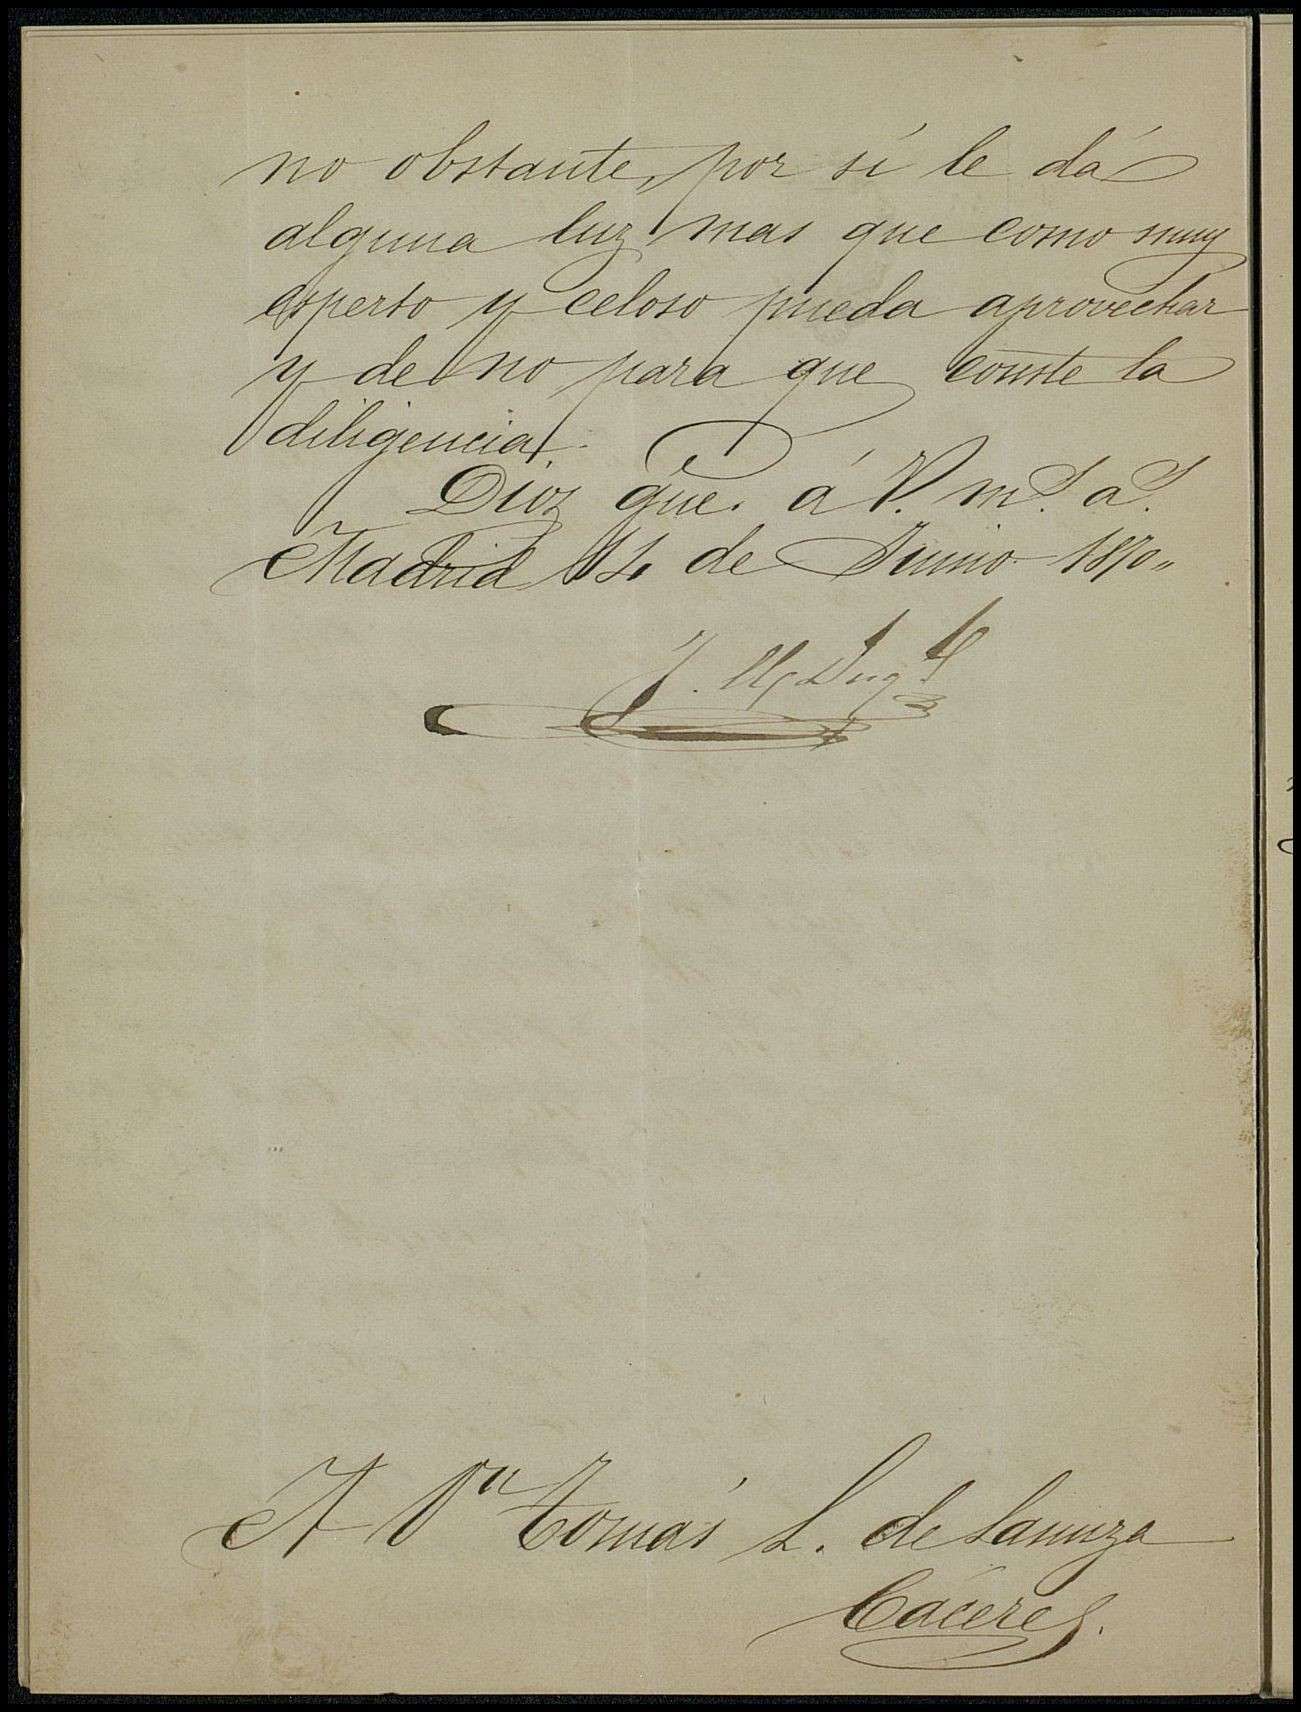 no obstante, por sí le dá
alguna luz mas que como muy
esperto y celoso pueda aprovechar
y de no para que conste la
diligencia.
Dios gūe. á V. m.s a.s
Madrid 14 de Junio 1870.,
A Dn Tomás L. de Sanuza
Cáceres.